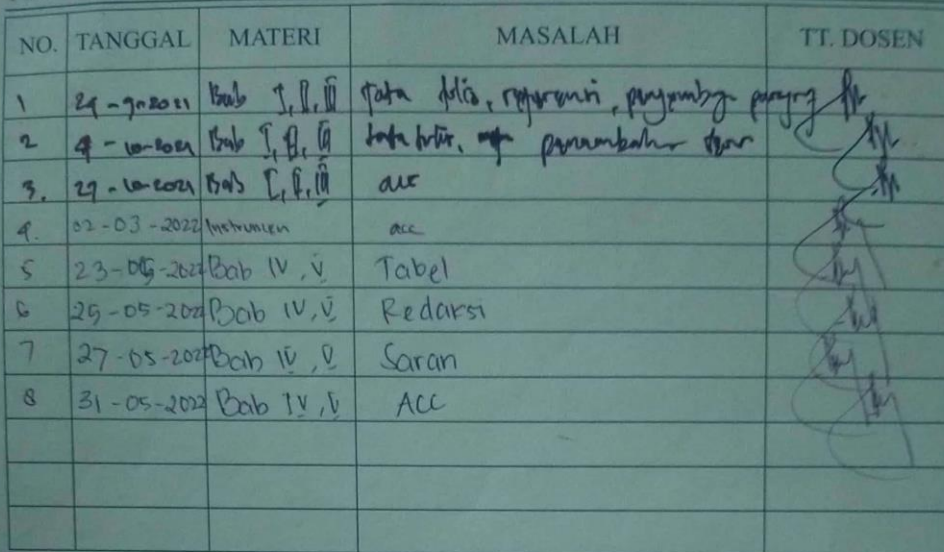 NO. TANGGAL MATERI MASALAH TT. DOSEN
1 24-9-2021 Bab I, II, III tata tulis, referensi,
2 4-10-2021 Bab I, II, III tata tulis, penambahan
3. 27-10-2021 Bab I, II, III acc
4. 02-03-2022 Instrumen acc
5 23-05-2022 Bab IV, V Tabel
6 25-05-2022 Bab IV, V Redaksi
7 27-05-2022 Bab IV, V Saran
8 31-05-2022 Bab IV, V ACC